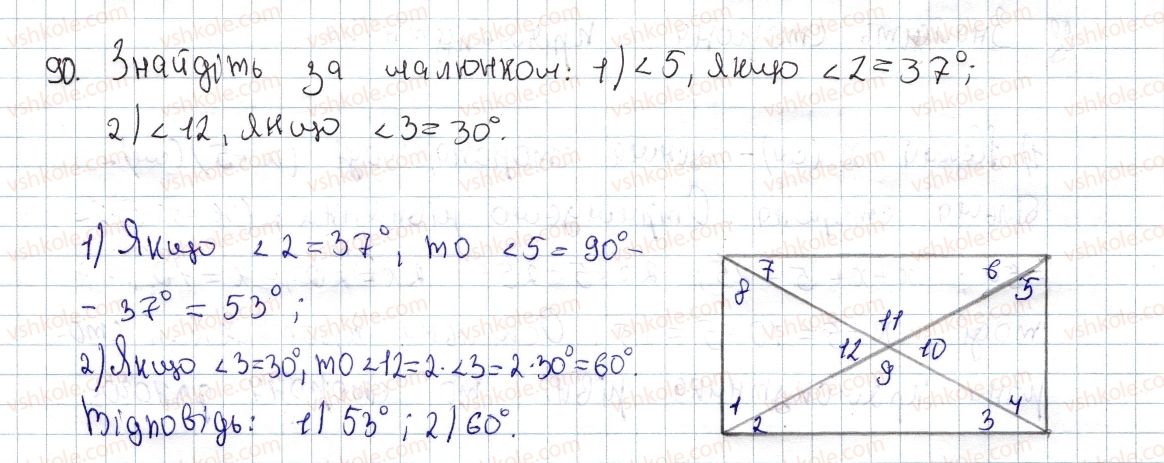 90. Знайдіть за малюнком: 1) <5, якщо <2=37°;
2) <12, якщо <3=30°.
1) Якщо <2=37°, то <5=90°-
- 37° = 53°;
2) Якщо <3=30°, то <12=2·<3=2·30°=60°.
Відповідь: 1) 53°; 2) 60°.
7 6
8 5
11
12 10
9
1 4
2 3
vshkole.com